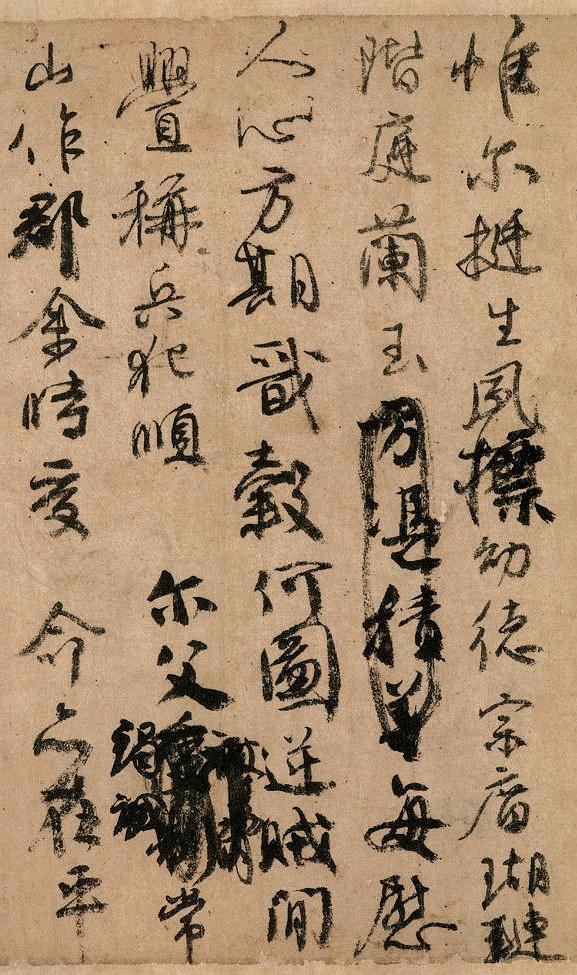 惟尔挺生夙標幼德宗庿瑚璉
階庭蘭玉方憑積善每慰
人心方期戩穀何圖逆賊間
舋稱兵犯順 尔父竭誠常
山作郡余時受 命亦在平